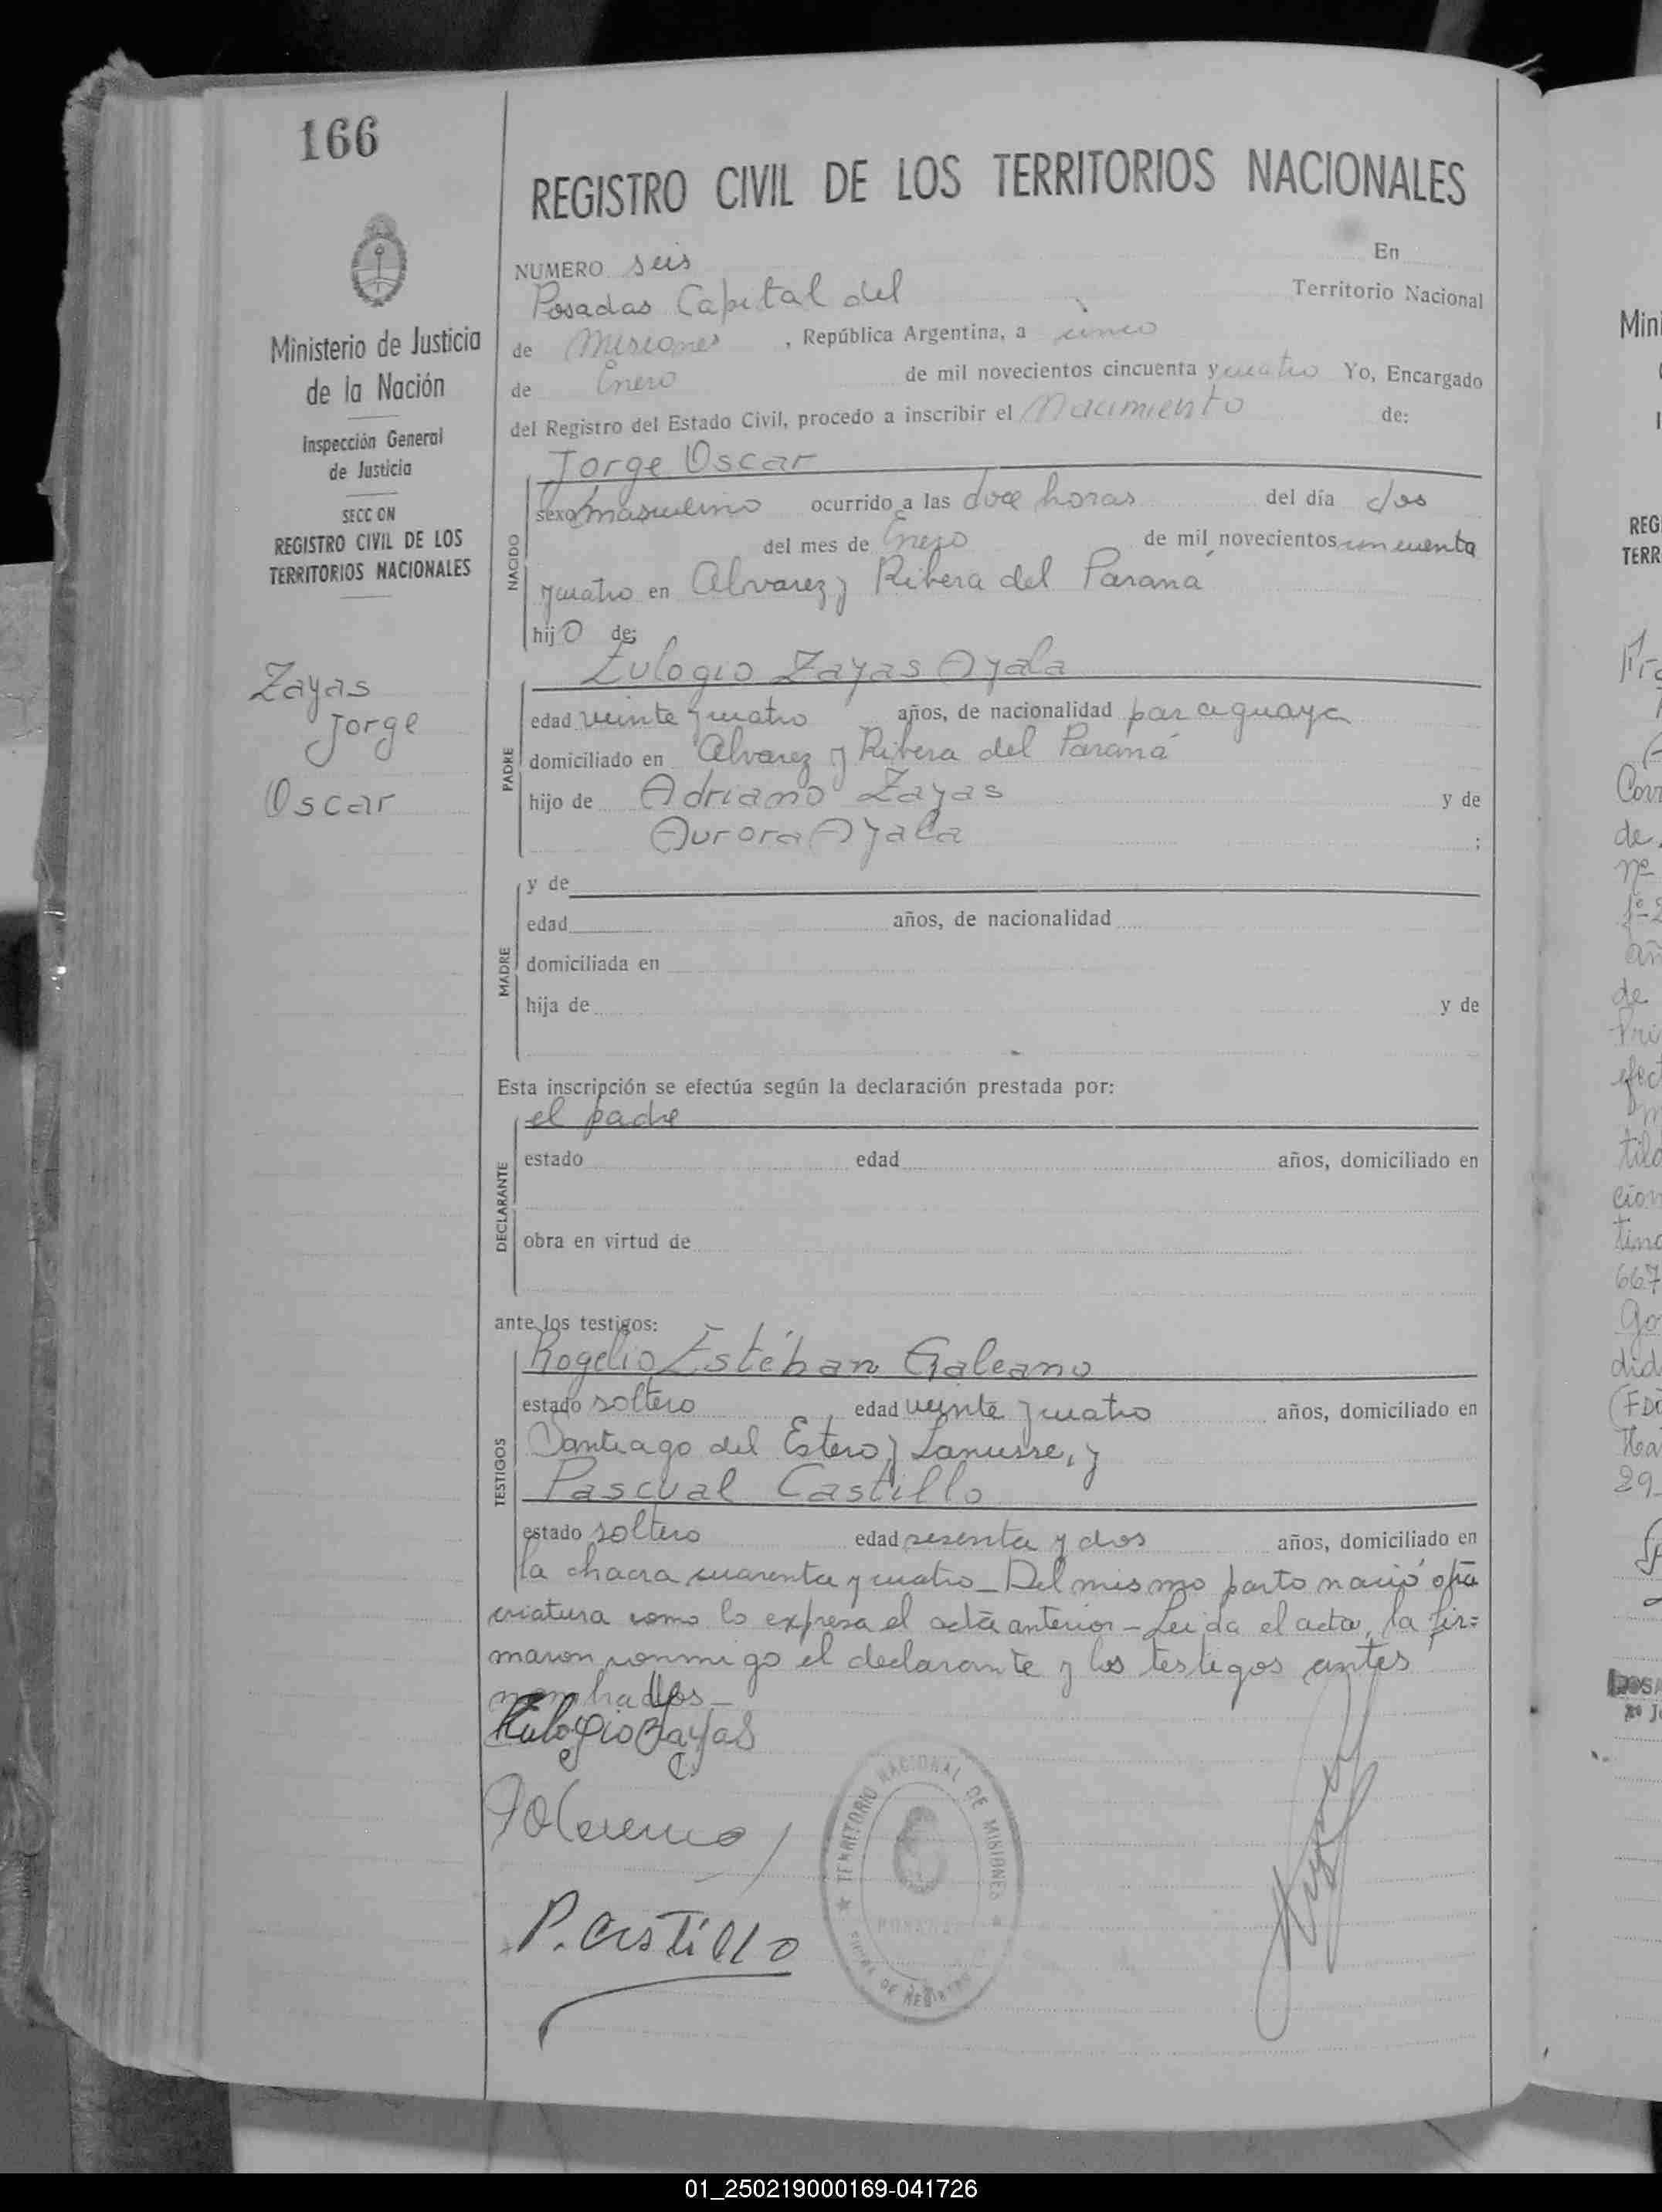 166
REGISTRO CIVIL DE LOS TERRITORIOS NACIONALES
Ministerio de Justicia
de la Nación
Inspección General
de Justicia
SECCION
REGISTRO CIVIL DE LOS
TERRITORIOS NACIONALES
Zayas
Jorge
Oscar
NUMERO seis En
Posadas Capital del Territorio Nacional
de Misiones, República Argentina, a cinco
de Enero de mil novecientos cincuenta y cuatro Yo, Encargado
del Registro del Estado Civil, procedo a inscribir el Nacimiento de:
Jorge Oscar
NACIDO
sexo masculino ocurrido a las doce horas del día dos
del mes de Enero de mil novecientos cincuenta
y cuatro en Alvarez y Ribera del Paraná
hijo de:
Eulogio Zayas Ayala
PADRE
edad veinte y cuatro años, de nacionalidad paraguaya
domiciliado en Alvarez y Ribera del Paraná
hijo de Adriano Zayas y de
Aurora Ayala ;
MADRE
y de
edad años, de nacionalidad
domiciliada en
hija de y de
Esta inscripción se efectúa según la declaración prestada por:
el padre
DECLARANTE
estado edad años, domiciliado en
obra en virtud de
ante los testigos:
TESTIGOS
Rogelio Estéban Galeano
estado soltero edad veinte y cuatro años, domiciliado en
Santiago del Estero y Lanusse, y
Pascual Castillo
estado soltero edad sesenta y dos años, domiciliado en
la chacra cuarenta y cuatro_Del mismo parto nació otra
criatura como lo expresa el acta anterior-Leida el acta, la fir=
maron conmigo el declarante y los testigos antes
nombrados_
Eulogio Zayas
P. Castillo
TERRITORIO NACIONAL DE MISIONES
POSADAS
OFICINA DE REGISTRO
Mini
REG
TERR
Corr
de
nº
de
Pri
efect
tild
cion
667
did
29
POSA
01_250219000169-041726